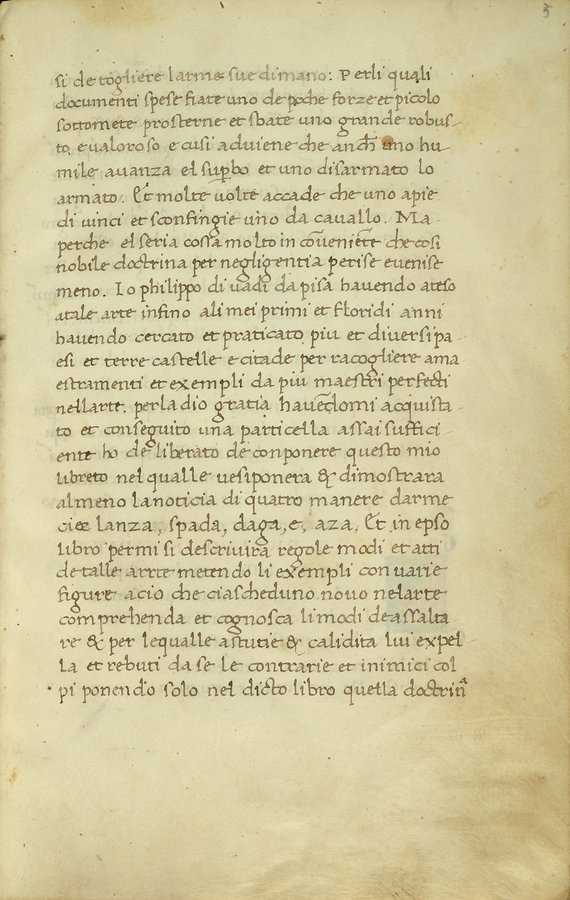 3
si de togliere larme sue di mano: Per li quali
documenti spese fiate uno de poche forze et picolo
sottomete prosterne et sbate uno grande robus-
to, e valoroso e cusi adviene che anch̄ uno hu-
mile avanza el sup̱bo et uno disarmato lo
armato. Et molte volte accade che uno a pie
di vinci et sconfingie uno da cavallo. Ma
perche el seria cossa molto in cōvenietē che cosi
nobile doctrina per negligentia perise e venise
meno. Io philippo di vadi da pisa havendo ateso
atale arte infino ali mei primi et floridi anni
havendo cercato et praticato piu et diversi pa-
esi et terre castelle e citade per racogliere ama
estramenti et exempli da piu maestri perfecti
nellarte. per la dio gratia havēdomi acquista-
to et conseguito una particella assai suffici-
ente ho deliberato de conponere questo mio
libreto nel qualle ve si ponera & dimostrara
almeno la noticia di quatro manere darme
cioe lanza, spada, daga, e, aza, Et in epso
libro per mi si descrivirà regole modi et atti
de talle arrte metendo li exempli con varie
figure acio che ciascheduno novo nelarte
comprehenda et cognosca li modi de assalta
re & per lequalle astutie & calidita lui expel-
la et rebuti da se le contrarie et inimici col-
pi ponendo solo nel dicto libro quella doctrinᵃ